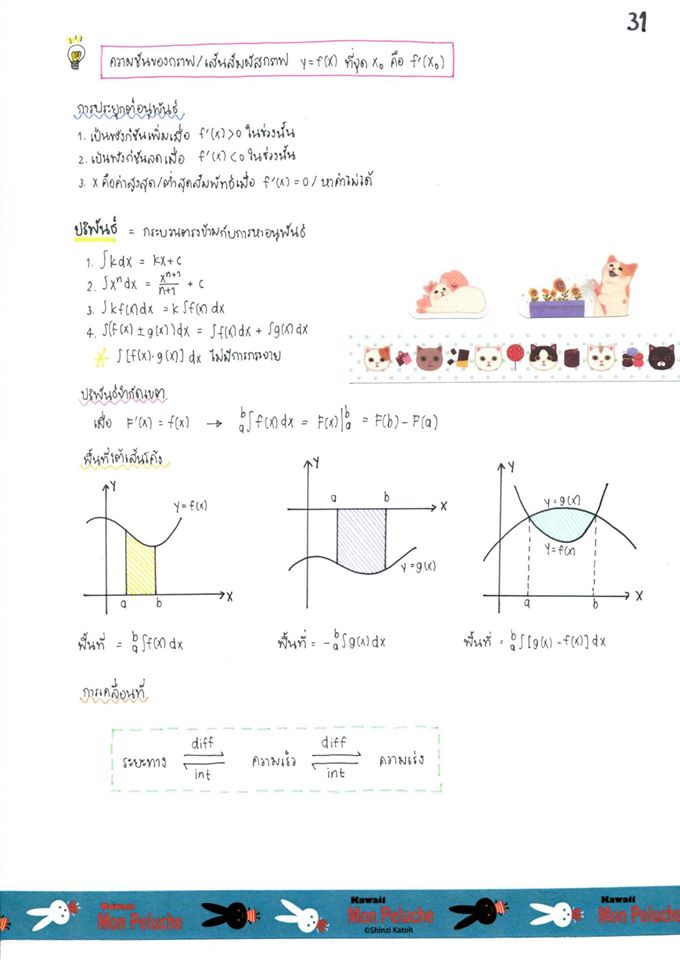 31
ความชันของกราฟ/เส้นสัมผัสกราฟ y=f(x) ที่จุด x₀ คือ f'(x₀)
การประยุกต์อนุพันธ์
1. เป็นฟังก์ชันเพิ่มเมื่อ f'(x) > 0 ในช่วงนั้น
2. เป็นฟังก์ชันลดเมื่อ f'(x) < 0 ในช่วงนั้น
3. x คือค่าสูงสุด/ต่ำสุดสัมพัทธ์เมื่อ f'(x) = 0 / หาค่าไม่ได้
ปริพันธ์ = กระบวนตรงข้ามกับการหาอนุพันธ์
1. ∫k dx = kx + c
2. ∫xⁿ dx = xⁿ⁺¹/n+1 + c
3. ∫k f(x) dx = k ∫f(x) dx
4. ∫(f(x) ± g(x)) dx = ∫f(x) dx + ∫g(x) dx
∫[f(x)·g(x)] dx ไม่มีการกระจาย
ปริพันธ์จำกัดเขต
เมื่อ F'(x) = f(x) → ᵇₐ∫f(x) dx = F(x)|ᵇₐ = F(b) - F(a)
พื้นที่ใต้เส้นโค้ง
Y
y = f(x)
a b X
Y
a b
X
y = g(x)
Y
y = g(x)
y = f(x)
a b X
พื้นที่ = ᵇₐ∫f(x) dx
พื้นที่ = -ᵇₐ∫g(x) dx
พื้นที่ = ᵇₐ∫[g(x) - f(x)] dx
การเคลื่อนที่
diff diff
ระยะทาง ⇌ ความเร็ว ⇌ ความเร่ง
int int
Kawaii
Mon Peluche
Kawaii
Mon Peluche
©Shinzi Katoh
Kawaii
Mon Peluche